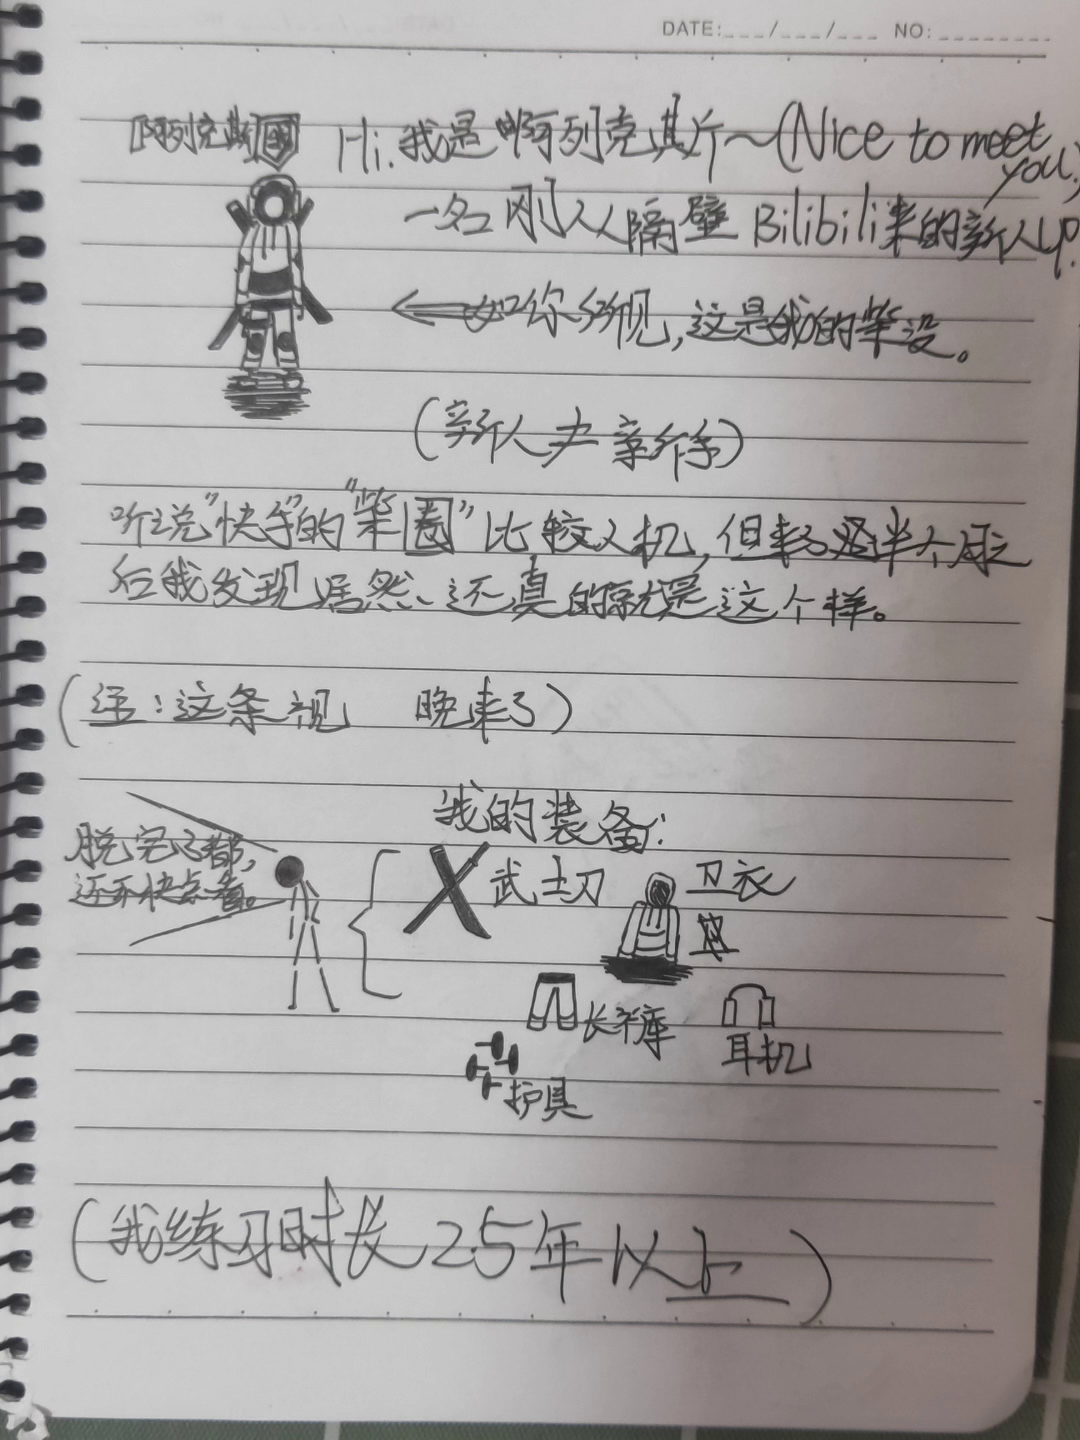 DATE:___/___/___ NO:________
阿列克斯
Hi.我是啊列克其斤~(Nice to meet you.)
一名刚从隔壁Bilibili来的新人UP.
如你所视,这是我的柴设。
(新人求亲亲)
听说"快手"的"柴圈"比较人机,但来了半个月
后我发现居然、还真的就是这个样。
(注:这条视 晚来了)
我的装备:
脱完了都,
还不快点看。
武士刀
卫衣
长裤
耳机
护具
(我练习时长2.5年以上)